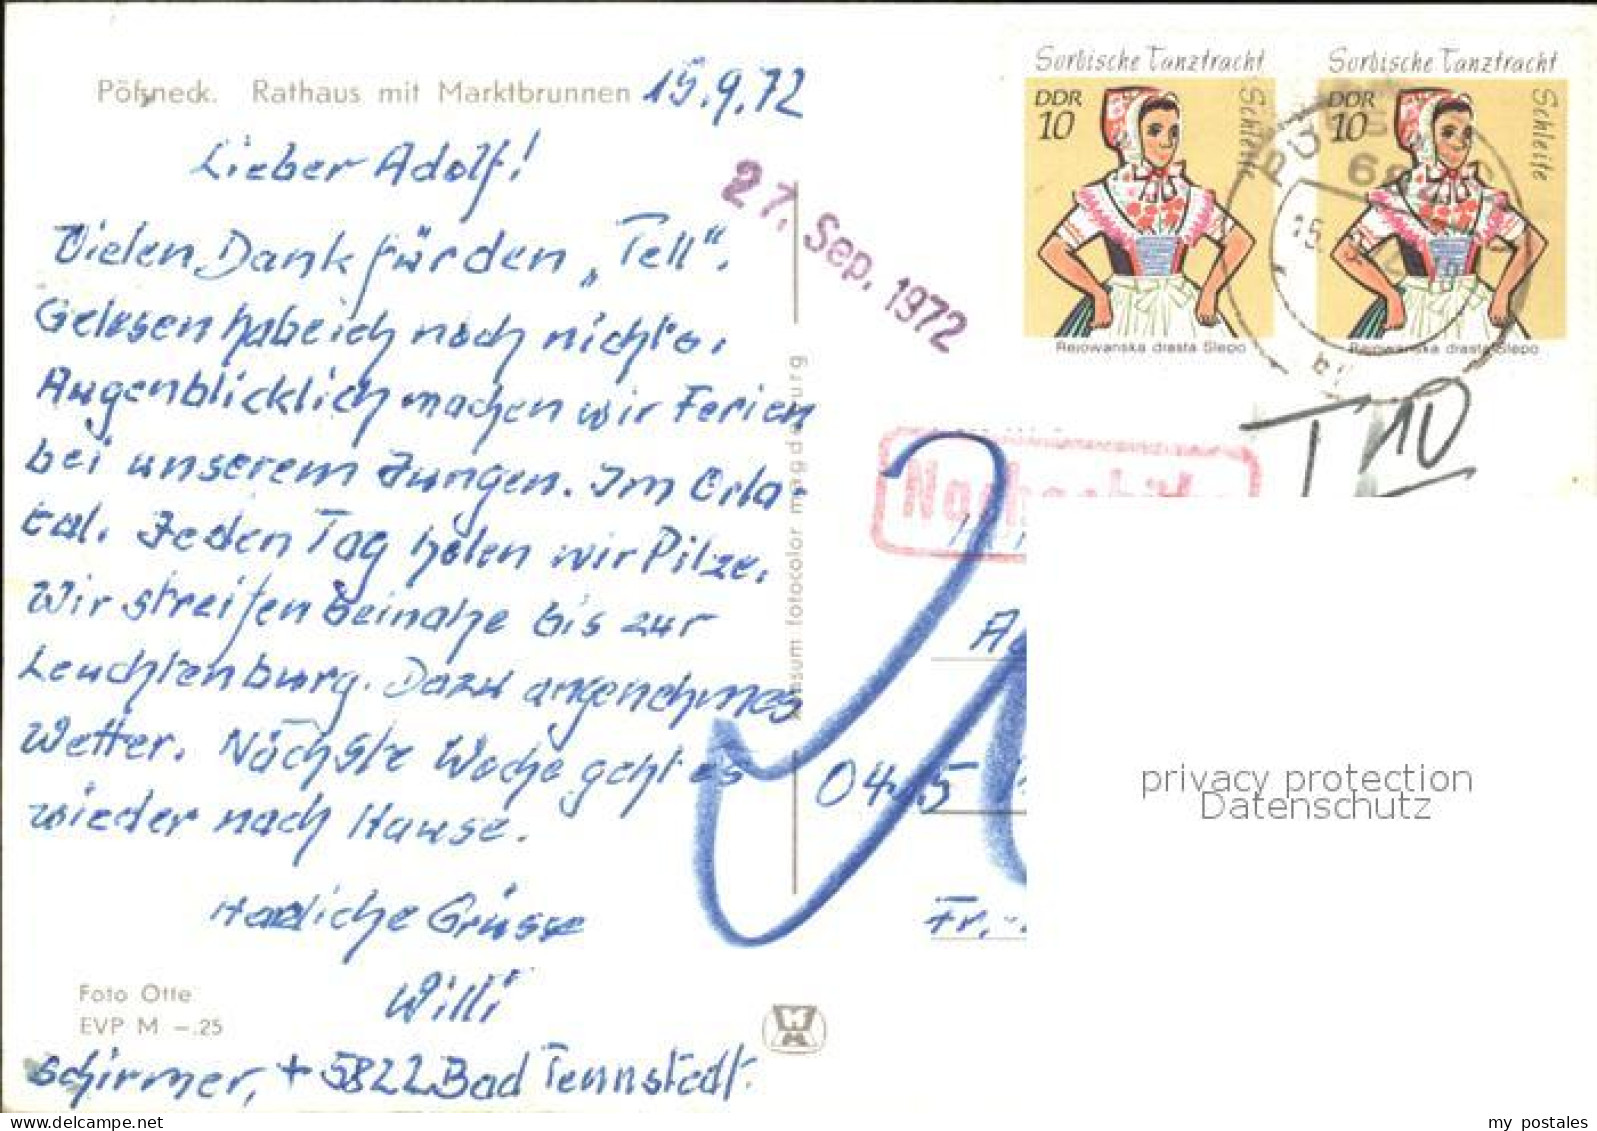 Pößneck. Rathaus mit Marktbrunnen 15.9.72
Lieber Adolf!
Vielen Dank für den „Tell".
Gelesen habe ich noch nichts.
Augenblicklich machen wir Ferien
bei unserem Jungen. Im Orla-
tal. Jeden Tag holen wir Pilze.
Wir streifen beinahe bis zur
Leuchtenburg. Dazu angenehmes
Wetter. Nächste Woche geht es
wieder nach Hause.
Herzliche Grüsse
Willi
Foto Otte
EVP M –.25
Schirmer, + 5822 Bad Tennstedt.
27. Sep. 1972
fotocolor magdeburg
Sorbische Tanztracht
DDR
10
Schleife
Rejowanska drasta Slepo
Sorbische Tanztracht
DDR
10
Schleife
Rejowanska drasta Slepo
T 10
Fr.
privacy protection
Datenschutz
my postales